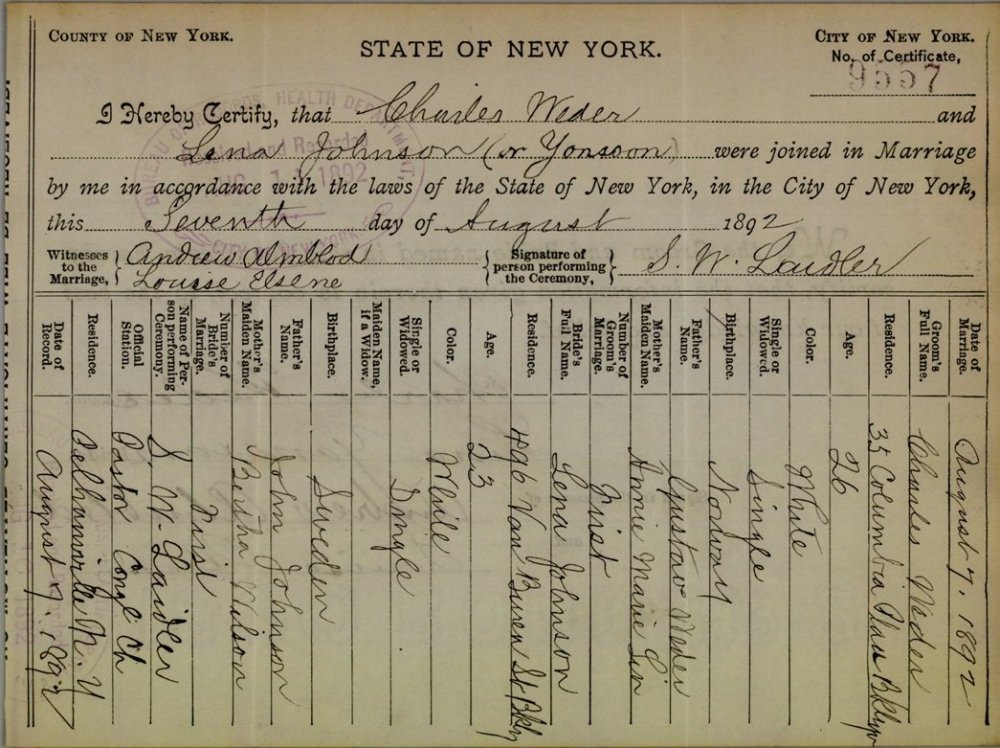 COUNTY OF NEW YORK.
STATE OF NEW YORK.
CITY OF NEW YORK.
No. of Certificate,
9557
I Hereby Certify, that Charles Weder and
Lena Johnson (or Yonsoon) were joined in Marriage
by me in accordance with the laws of the State of New York, in the City of New York,
this Seventh day of August 1892
Witnesses to the Marriage, Andrew Almblod
Louise Elsene
Signature of person performing the Ceremony, S. W. Laidler
Date of Marriage. August 7, 1892
Groom's Full Name. Charles Weder
Residence. 35 Columbia Place Bklyn
Age. 26
Color. White
Single or Widowed. Single
Birthplace. Norway
Father's Name. Gustav Weder
Mother's Maiden Name. Annie Marie Lin
Number of Groom's Marriage. First
Bride's Full Name. Lena Johnson
Residence. 496 Van Buren St Bkly
Age. 23
Color. White
Single or Widowed. Single
Maiden Name, if a Widow.
Birthplace. Sweden
Father's Name. John Johnson
Mother's Maiden Name. Bertha Nilson
Number of Bride's Marriage. First
Name of Person performing Ceremony. S. W. Laidler
Official Station. Pastor Congl Ch
Residence. Pelhamville N. Y
Date of Record. August 7, 1892